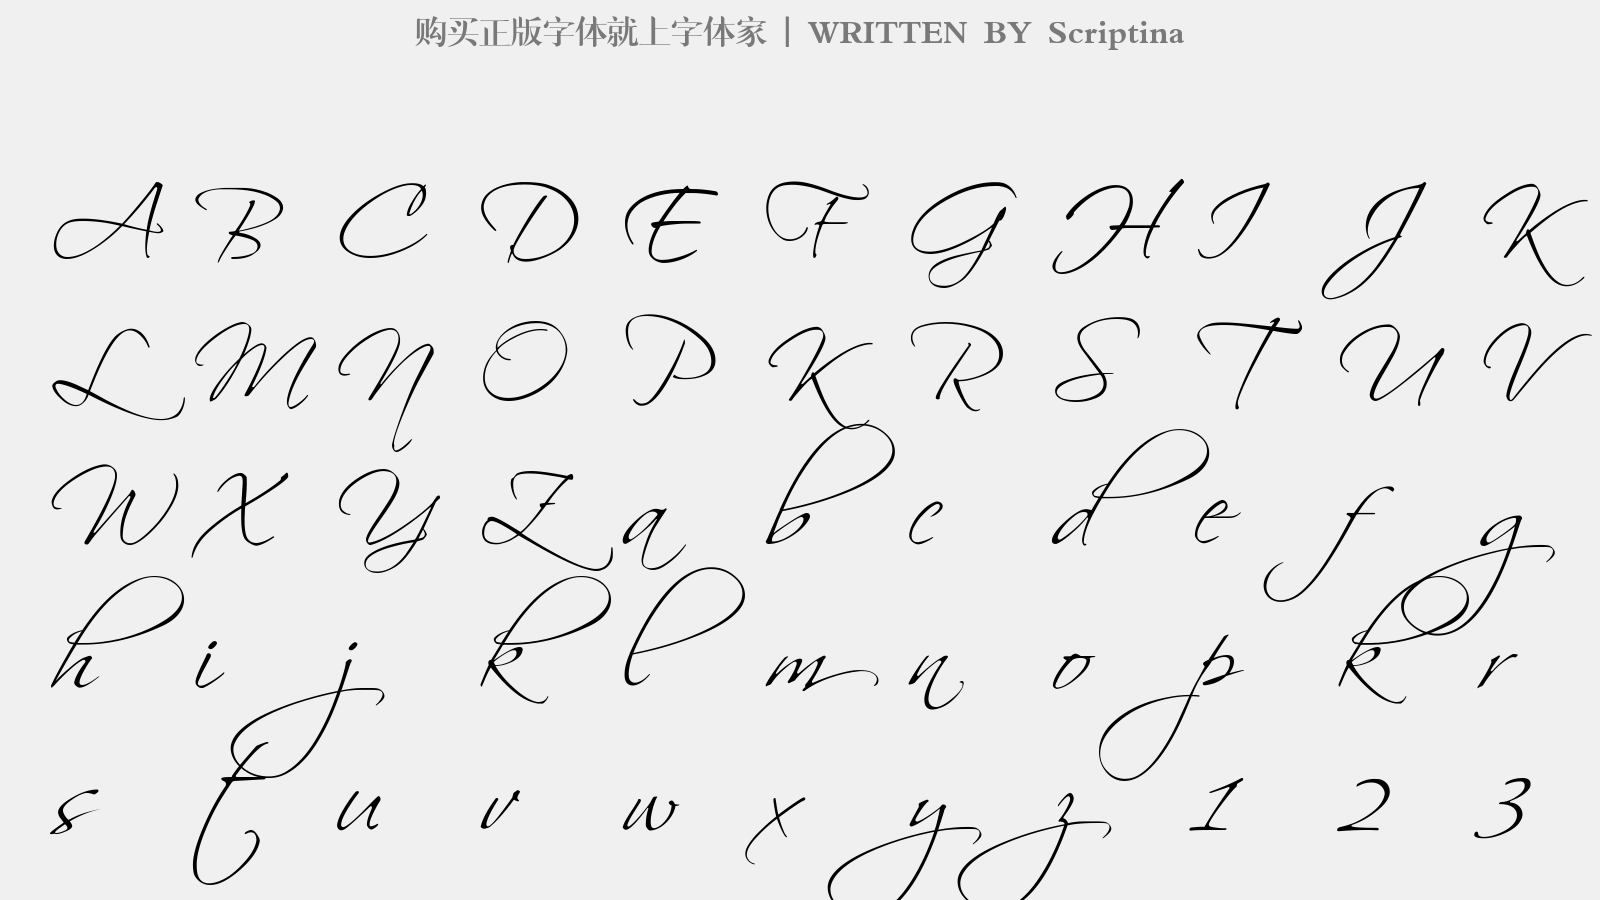 购买正版字体就上字体家 | WRITTEN BY Scriptina
A B C D E F G H I J K
L M N O P K R S T U V
W X Y Z a b c d e f g
h i j k l m n o p k r
s t u v w x y z 1 2 3